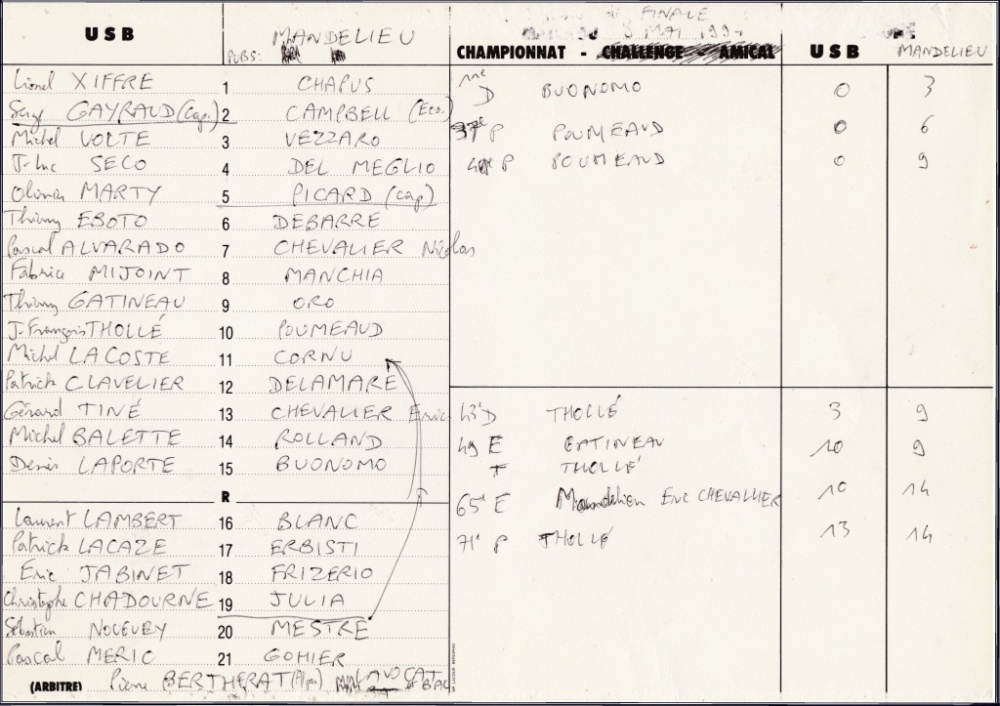 USB MANDELIEU
FINALE
MAI 199
CHAMPIONNAT - CHALLENGE - AMICAL USB MANDELIEU
Lionel XIFFRE 1 CHAPUS
Serge GAYRAUD (Cap.) 2 CAMPBELL (Eco.)
Michel VOLTE 3 VEZZARO
J-Luc SECO 4 DEL MEGLIO
Olivier MARTY 5 PICARD (cap)
Thierry EBOTO 6 DEBARRE
Pascal ALVARADO 7 CHEVALIER Nicolas
Fabrice MIJOINT 8 MANCHIA
Thierry GATINEAU 9 ORO
J-François THOLLÉ 10 POUMEAUD
Michel LACOSTE 11 CORNU
Patrick CLAVELIER 12 DELAMARE
Gérard TINÉ 13 CHEVALIER Eric
Michel BALETTE 14 ROLLAND
Denis LAPORTE 15 BUONOMO
R
Laurent LAMBERT 16 BLANC
Patrick LACAZE 17 ERBISTI
Eric JABINET 18 FRIZERIO
Christophe CHADOURNE 19 JULIA
Sébastien 20 MESTRE
Pascal MERIC 21 GOHIER
(ARBITRE) Pierre BERTHERAT (Alpes)
D BUONOMO 0 3
37e P POUMEAUD 0 6
P POUMEAUD 0 9
43' D THOLLÉ 3 9
49 E GATINEAU 10 9
T THOLLÉ
65' E Mandelieu Eric CHEVALLIER 10 14
71' P THOLLÉ 13 14